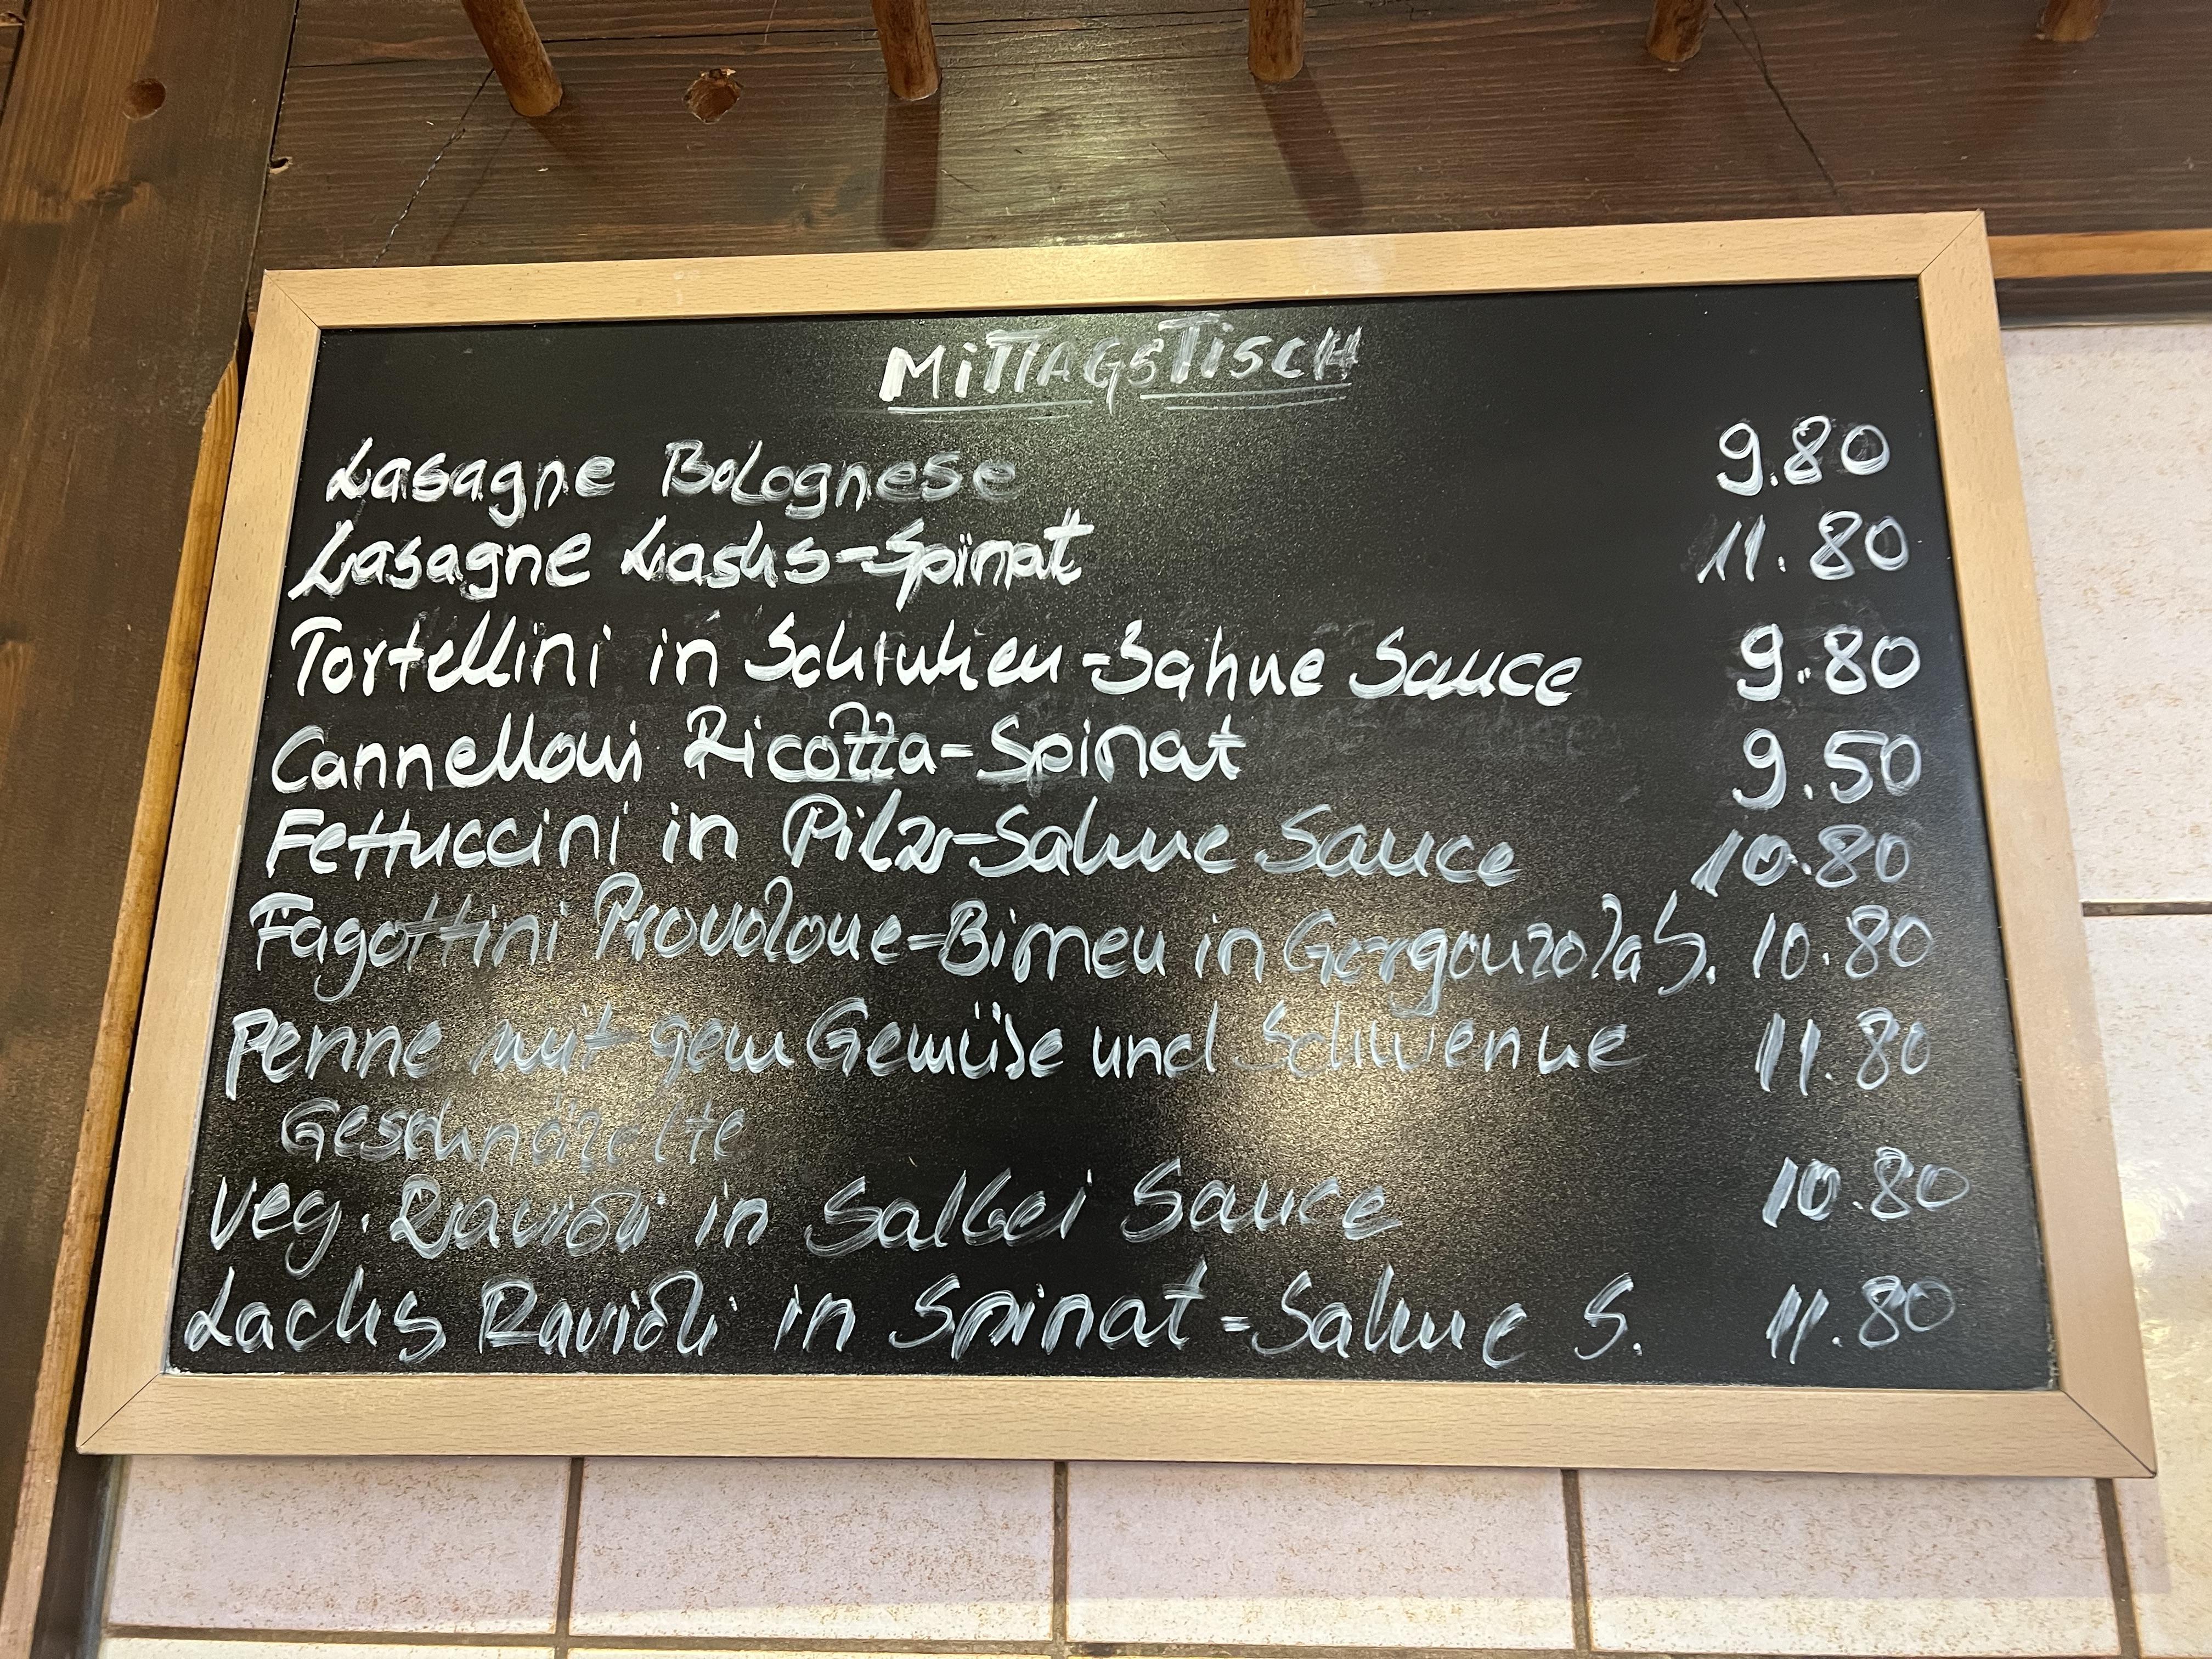 MITTAGSTISCH
Lasagne Bolognese 9.80
Lasagne Lachs-Spinat 11.80
Tortellini in Schinken-Sahne Sauce 9.80
Cannelloni Ricotta-Spinat 9.50
Fettuccini in Pilz-Sahne Sauce 10.80
Fagottini Provolone-Birnen in Gorgonzola S. 10.80
Penne mit gem Gemüse und Schweine 11.80
Geschnäzelte
Veg. Ravioli in Salbei Sauce 10.80
Lachs Ravioli in Spinat-Sahne S. 11.80